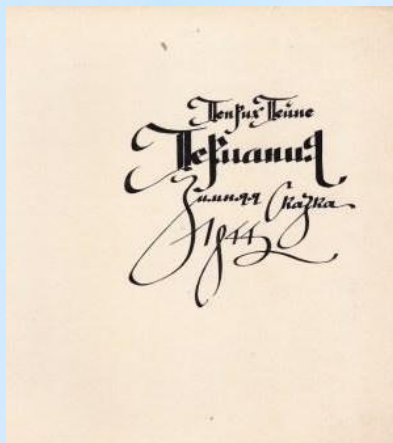 Генрих Гейне
Германия
Зимняя Сказка
1844